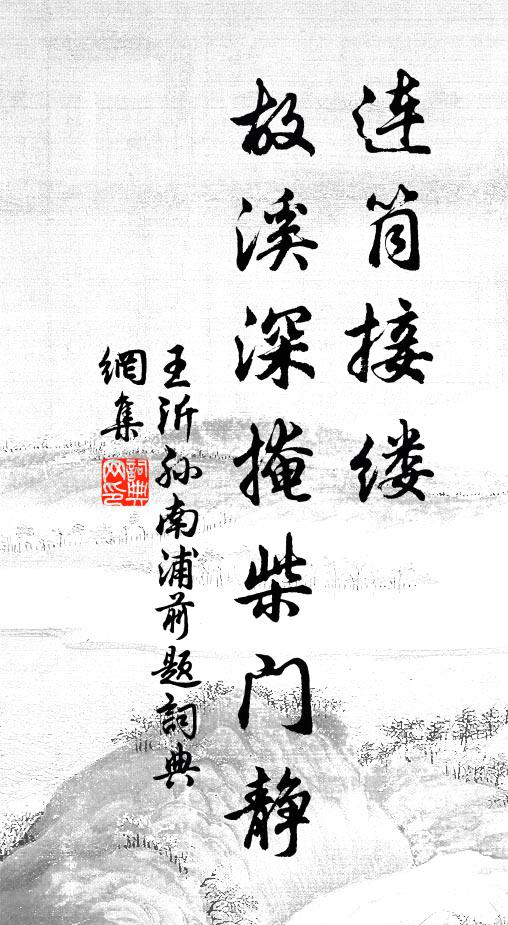 连筒接缕
故溪深掩柴门静
王沂孙南浦前题词典
網集
詞典网印